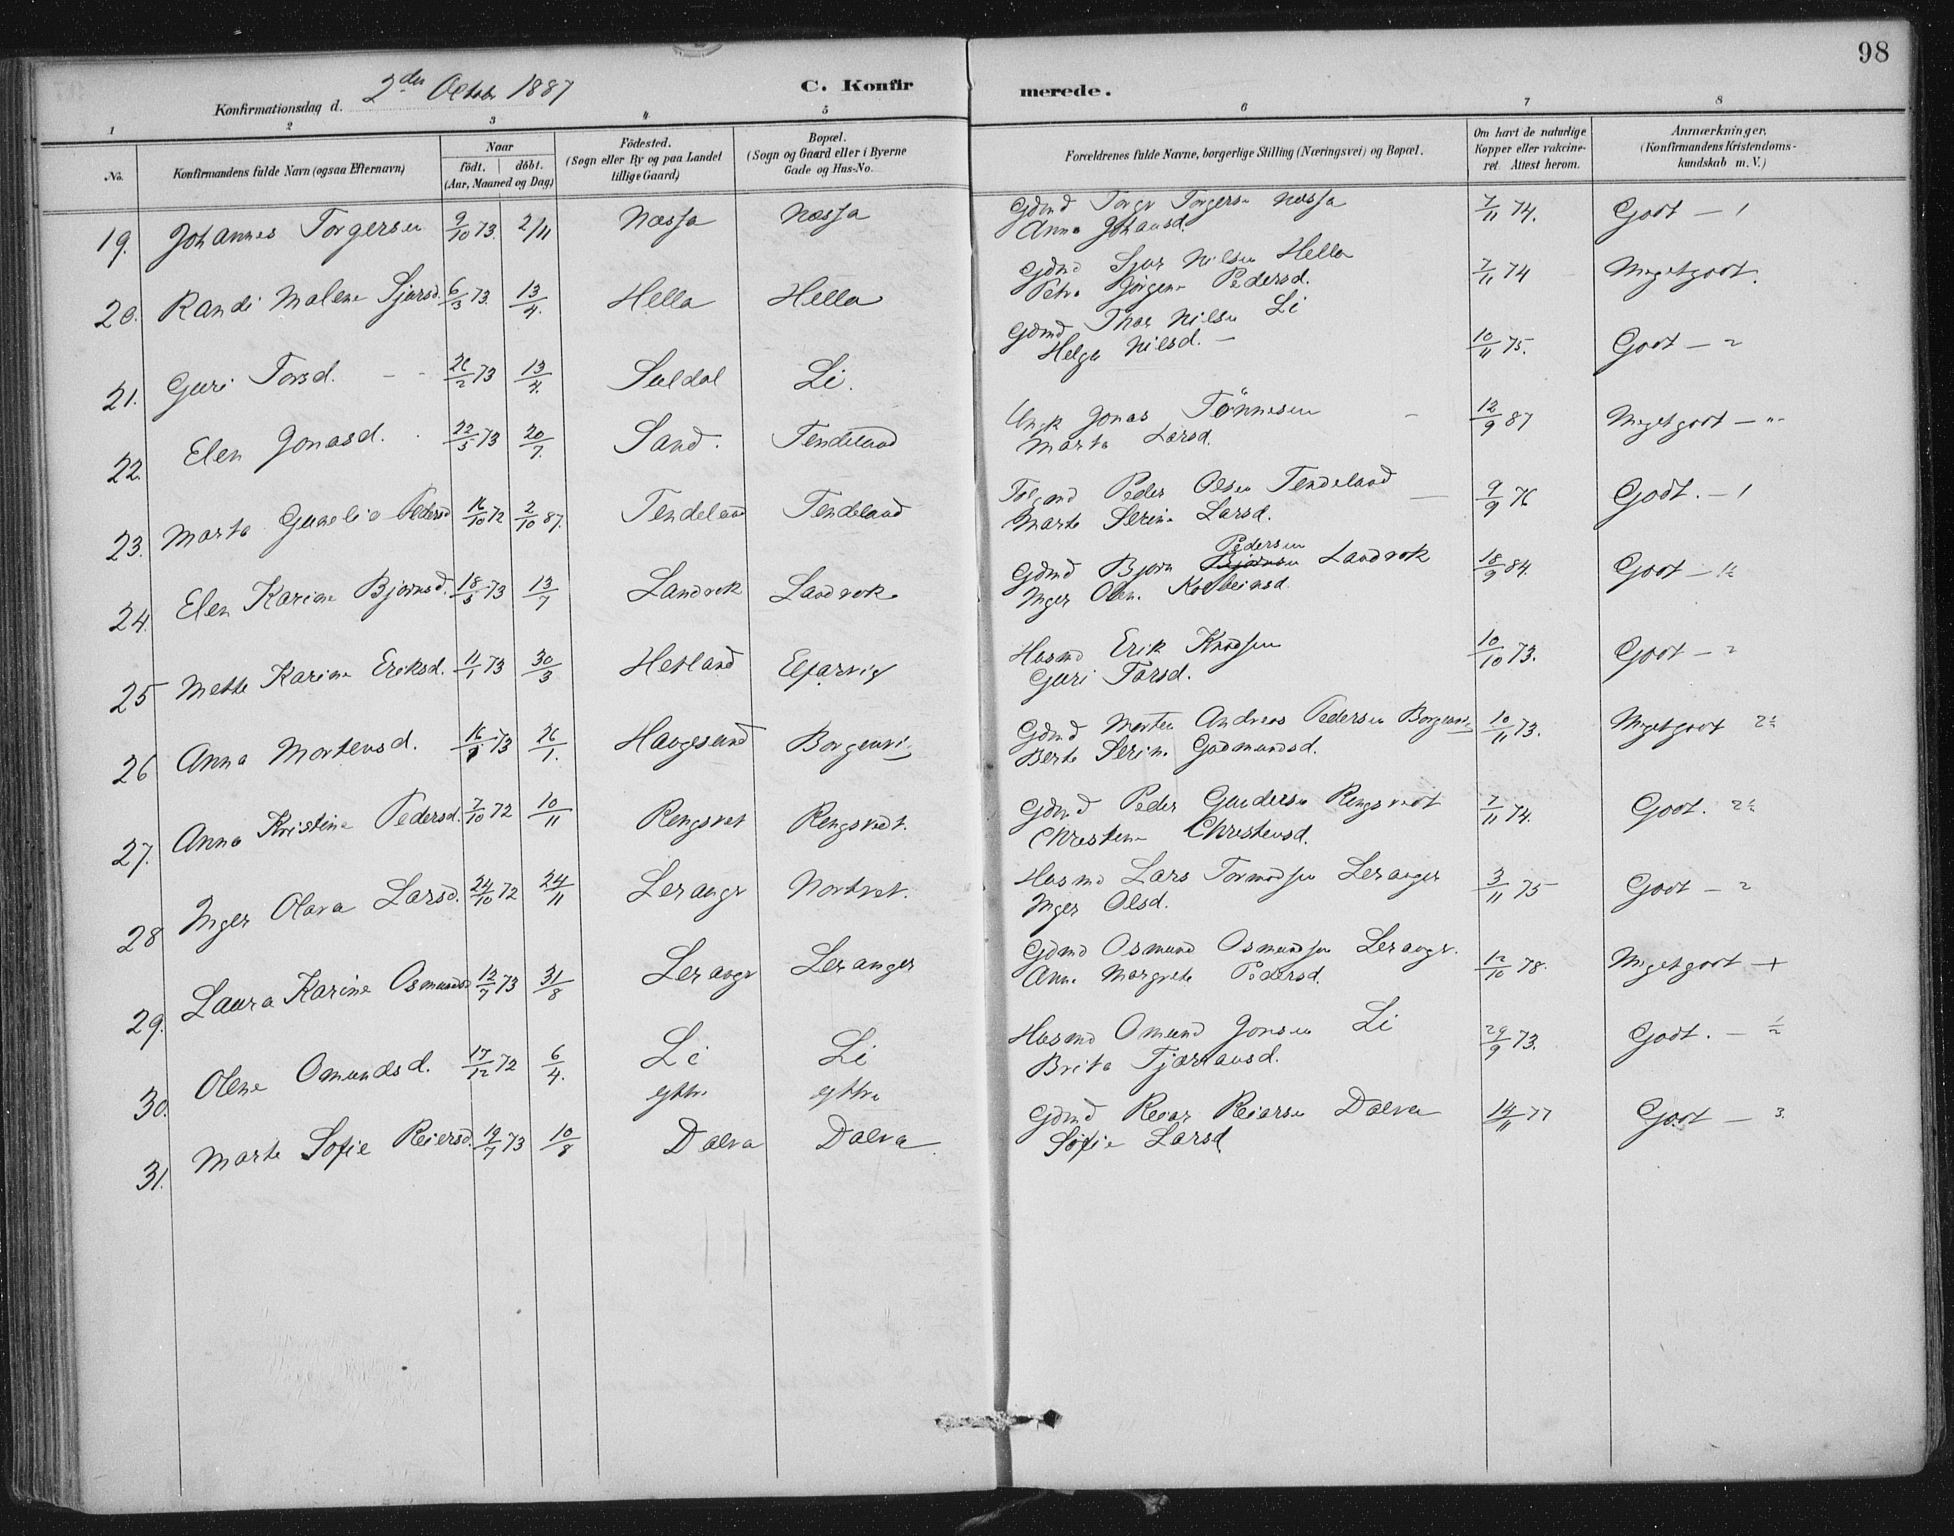 98
Konfirmationsdag d. 2den Octobr 1887
C. Konfirmerede.
1 2 3 4 5 6 7 8
No.
Konfirmandens fulde Navn (ogsaa Efternavn)
Naar
födt. döbt.
(Aar, Maaned og Dag)
Födested.
(Sogn eller By og paa Landet
tillige Gaard)
Bopæl.
(Sogn og Gaard eller i Byerne
Gade og Hus-No.
Forældrenes fulde Navne, borgerlige Stilling (Næringsvei) og Bopæl.
Om havt de naturlige
Kopper eller vakcine-
ret. Attest herom.
Anmærkninger.
(Konfirmandens Kristendoms-
kundskab m. V.)
19. Johannes Torgersen 9/10 73. 2/11 Næssa Næssa Gdmd Torgr Torgersn Næssa 7/11 74. Godt – 1
Anna Johansd.
20. Randi Malene Sjursd. 6/3 73. 13/4. Hella Hella Gdmd Sjur Nilsen Hella 7/11 74 Megetgodt.
Petra Jörgine Pedersd.
21. Guri Torsd. 26/2 73 13/4. Suldal Li. Gdmd Thor Nilsen Li 10/11 75. Godt – 2
Helga Nilsd. –
22. Elen Jonasd. 22/5 73 20/7. Sand. Tendeland Ungk Jonas Tönnesen 12/9 87 Megetgodt – "
Marta Larsd.
23. Marta Gunelia Pedersd 16/10 72 2/10 87. Tendeland Tendeland Peder Olsen Tendeland 9/9 76 Godt. – 1
Marta Serine Larsd.
24. Elen Karine Bjørnsd. 18/5 73 13/7 Landrok Landrok Gdmd Bjørn Bjørnsen Pedersen Landrok 18/9 84. Godt – 1½
Inger Olene Kolbeinsd.
25 Mette Karine Eriksd. 11/1 73 30/3 Hetland Elfarvig Husmd Erik Knudsen 10/10 73. Godt – 2
Guri Torsd.
26 Anna Mortensd. 16/1 73 26/1. Haugesund Borgenvi Gdmd Morten Andreas Pedersen Borgenvi 10/11 73. Megetgodt 2½
Berta Serine Gudmundsd.
27. Anna Kristine Pedersd. 7/10 72 10/11 Rengsvet Rengsvedt. Gdmd Peder Gundersen Rengsvedt 7/11 74. Godt. 2½
Christene Christensd.
28 Inger Olava Larsd. 24/10 72 24/11 Lerangr Nordvet. Husmd Lars Tormodsen Leranger 3/11 75 Godt – 2
Inger Olsd.
29. Laura Karine Osmundsd 12/7 73 31/8 Lerangr Leranger Gdmd Osmund Osmundsen Lerangr. 12/10 78. Megetgodt +
Anne Margrete Pedersd.
30. Olene Omundsd. 17/12 72 6/4. Li Li Husmd Omund Jonsen Li 29/9 73. Godt. – ½
Brita Tjærandsd.
31. Marta Sofie Reiersd. 19/7 73 10/8 yttre Dalva yttre Dalva Gdmd Reiar Reiarsen Dalva 14/11 77 Godt – 3.
Sofie Larsd